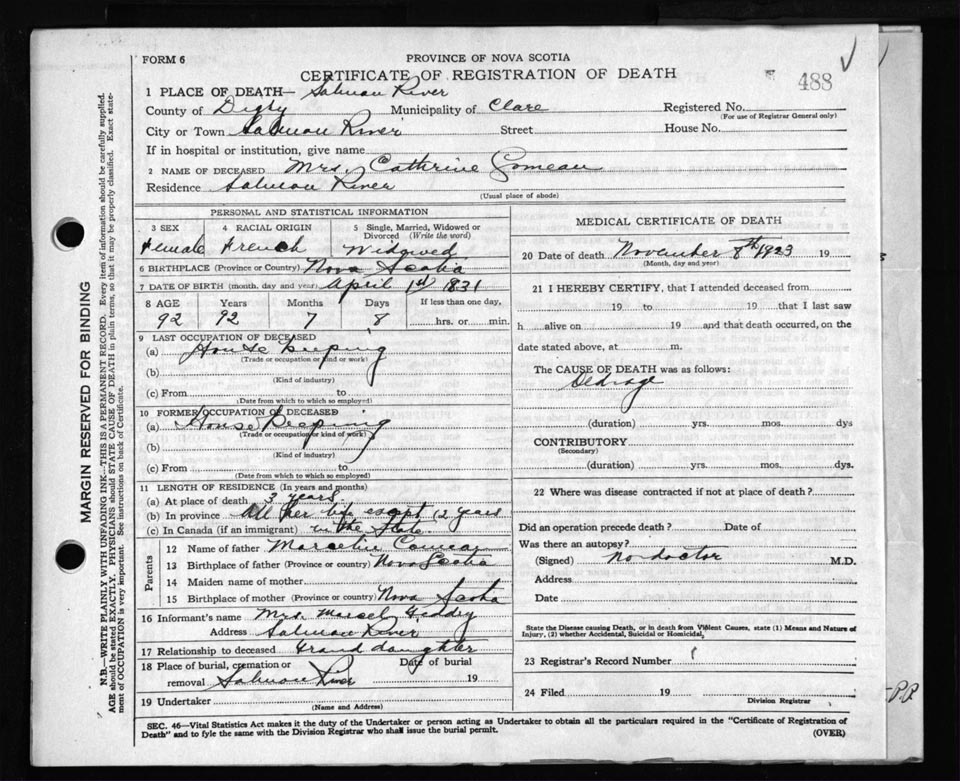 FORM 6
PROVINCE OF NOVA SCOTIA
CERTIFICATE OF REGISTRATION OF DEATH
488
1 PLACE OF DEATH— Salmon River
County of Digby Municipality of Clare Registered No.
(For use of Registrar General only)
City or Town Salmon River Street House No.
If in hospital or institution, give name
2 NAME OF DECEASED Mrs. Cathrine Comeau
Residence Salmon River
(Usual place of abode)
PERSONAL AND STATISTICAL INFORMATION
3 SEX 4 RACIAL ORIGIN 5 Single, Married, Widowed or Divorced (Write the word)
Female French Widowed
6 BIRTHPLACE (Province or Country) Nova Scotia
7 DATE OF BIRTH (month, day and year) April 1st 1831
8 AGE Years Months Days If less than one day,
92 92 7 8 hrs. or min.
9 LAST OCCUPATION OF DECEASED
(a) House keeping
(Trade or occupation or kind or work)
(b)
(Kind of industry)
(c) From to
(Date from which to which so employed)
10 FORMER OCCUPATION OF DECEASED
(a) House Keeping
(Trade or occupation or kind of work)
(b)
(Kind of industry)
(c) From to
(Date from which to which so employed)
11 LENGTH OF RESIDENCE (In years and months)
(a) At place of death 3 years
(b) In province All her life except 12 years
(c) In Canada (if an immigrant) in the State
Parents
12 Name of father Marcelin Comeau
13 Birthplace of father (Province or country) Nova Scotia
14 Maiden name of mother
15 Birthplace of mother (Province or country) Nova Scotia
16 Informant's name Mrs. Marcel
Address Salmon River
17 Relationship to deceased Grand daughter
18 Place of burial, cremation or removal Salmon River Date of burial 19
19 Undertaker
(Name and Address)
MEDICAL CERTIFICATE OF DEATH
20 Date of death November 8th 1923 19
(Month, day and year)
21 I HEREBY CERTIFY, that I attended deceased from
19 to 19 that I last saw
h alive on 19 and that death occurred, on the
date stated above, at m.
The CAUSE OF DEATH was as follows:
(duration) yrs. mos. dys
CONTRIBUTORY
(Secondary)
(duration) yrs. mos. dys.
22 Where was disease contracted if not at place of death?
Did an operation precede death? Date of
Was there an autopsy?
(Signed) No doctor M.D.
Address
Date
State the Disease causing Death, or in death from Violent Causes, state (1) Means and Nature of Injury, (2) whether Accidental, Suicidal or Homicidal,
23 Registrar's Record Number
24 Filed 19
Division Registrar
SEC. 46—Vital Statistics Act makes it the duty of the Undertaker or person acting as Undertaker to obtain all the particulars required in the "Certificate of Registration of
Death" and to fyle the same with the Division Registrar who shall issue the burial permit. (OVER)
MARGIN RESERVED FOR BINDING
N.B.—WRITE PLAINLY WITH UNFADING INK—THIS IS A PERMANENT RECORD. Every item of information should be carefully supplied.
AGE should be stated EXACTLY. PHYSICIANS should STATE CAUSE OF DEATH in plain terms, so that it may be properly classified. Exact state-
ment of OCCUPATION is very important. See instructions on back of Certificate.